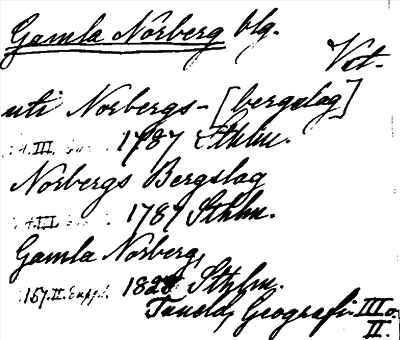 Gamla Norberg blg.
Vst.
uti Norbergs-[bergslag]
III. 1787 Sthlm.
Norbergs Bergslag
1787 Sthlm.
Gamla Norberg,
157.II. Suppl. 182 Sthlm.
Tuneld, Geografi III o.
II.